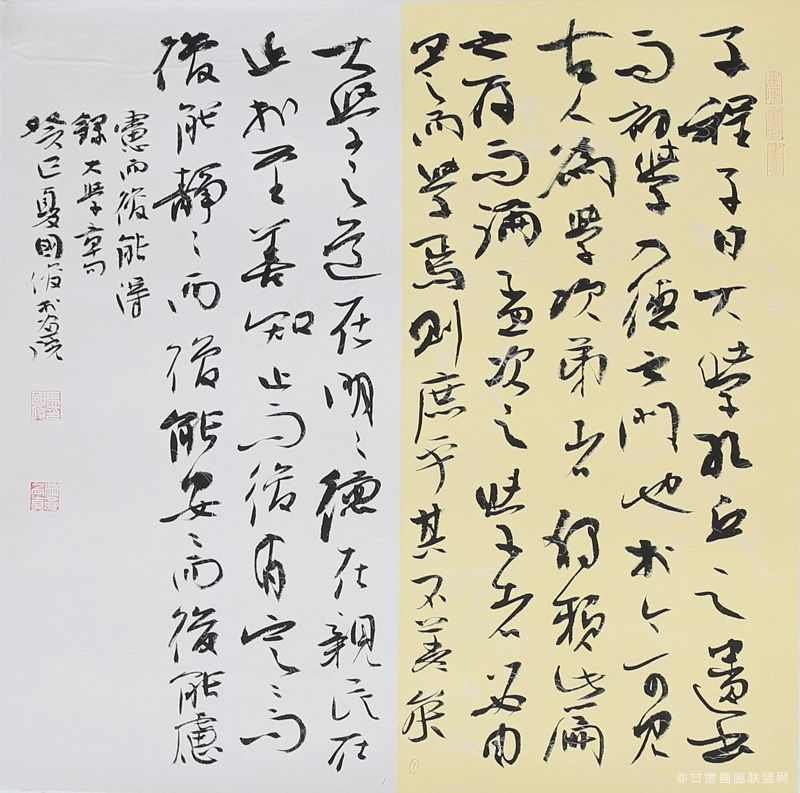 子程子曰大學孔丘之遺書
而初學入德之門也於今可見
古人為學次第者獨賴此篇
之存而論孟次之學者必由
是而學焉則庶乎其不差矣
大學之道在明〻德在親民在
止於至善知止而後有定〻而
後能靜〻而後能安〻而後能慮
慮而後能得
錄大學章句
癸巳夏國俊於
@甘肃画廊联盟网